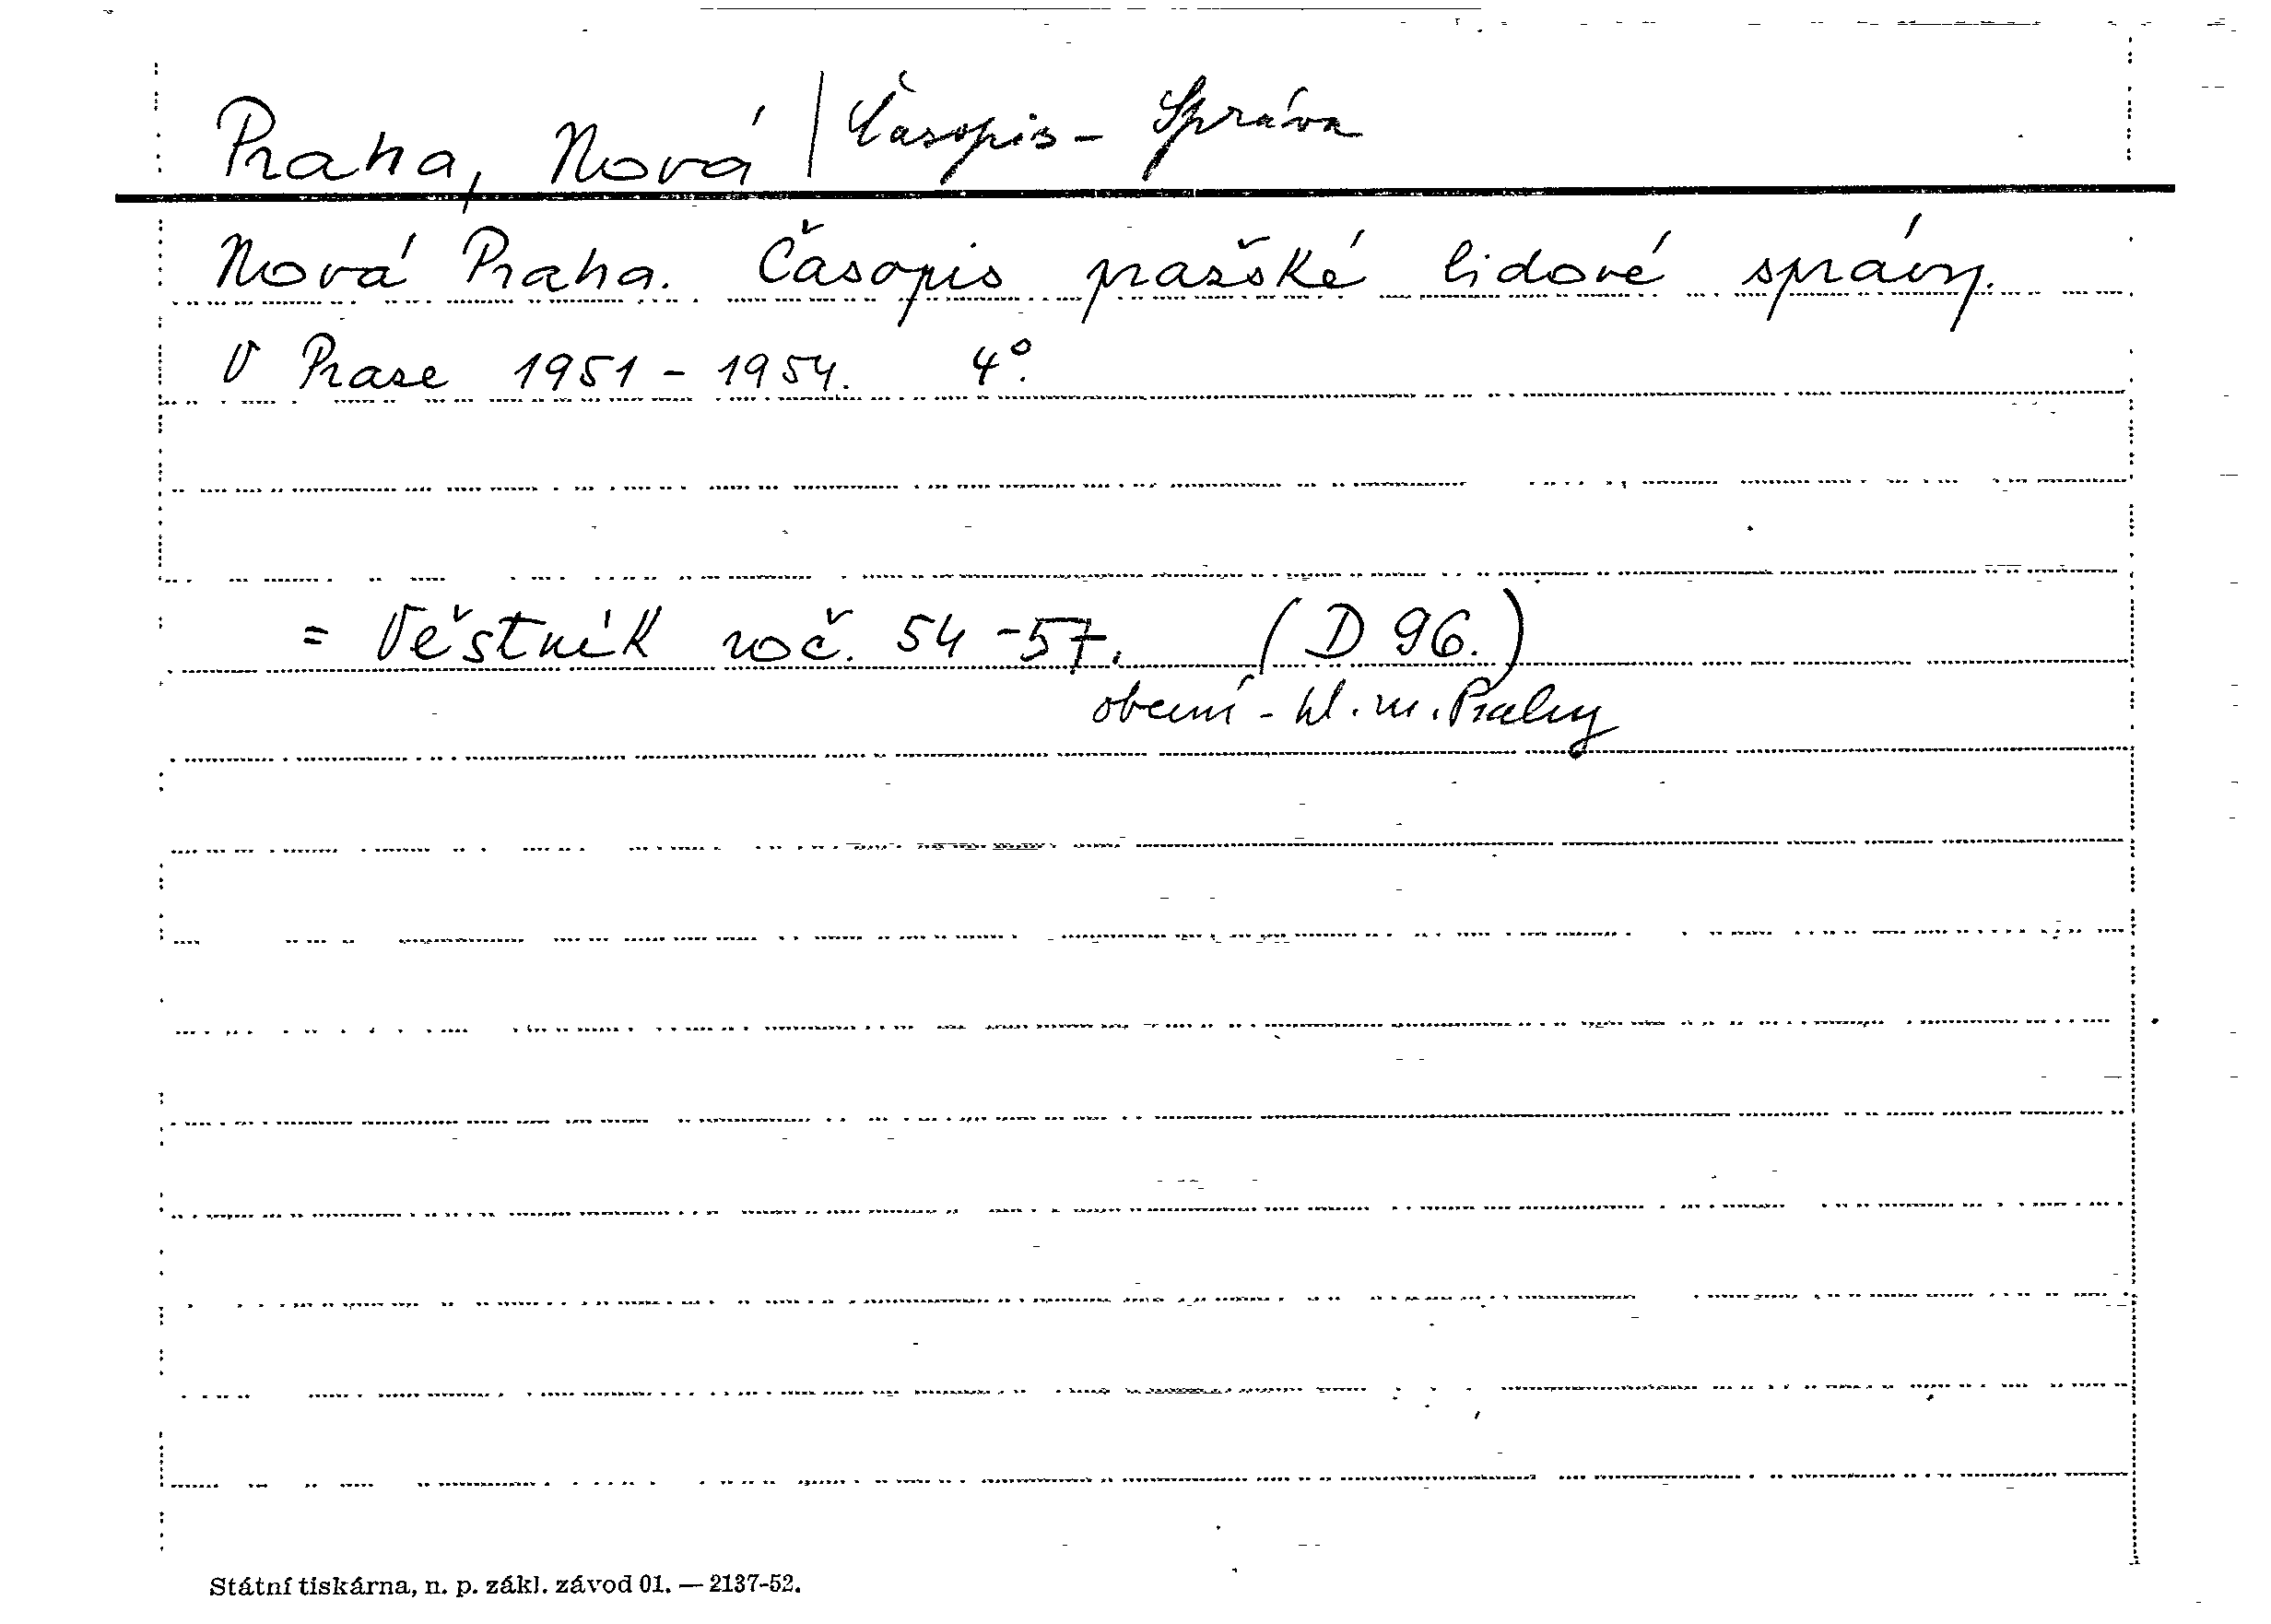 Praha, Nová | Časopis - Správa
Nová Praha. Časopis pražské lidové správy.
V Praze 1951 - 1954. 4°.
= Věstník roč. 54 - 57. (D 96.)
obecní - hl. m. Prahy
Státní tiskárna, n. p. zákl. závod 01. — 2137-52.